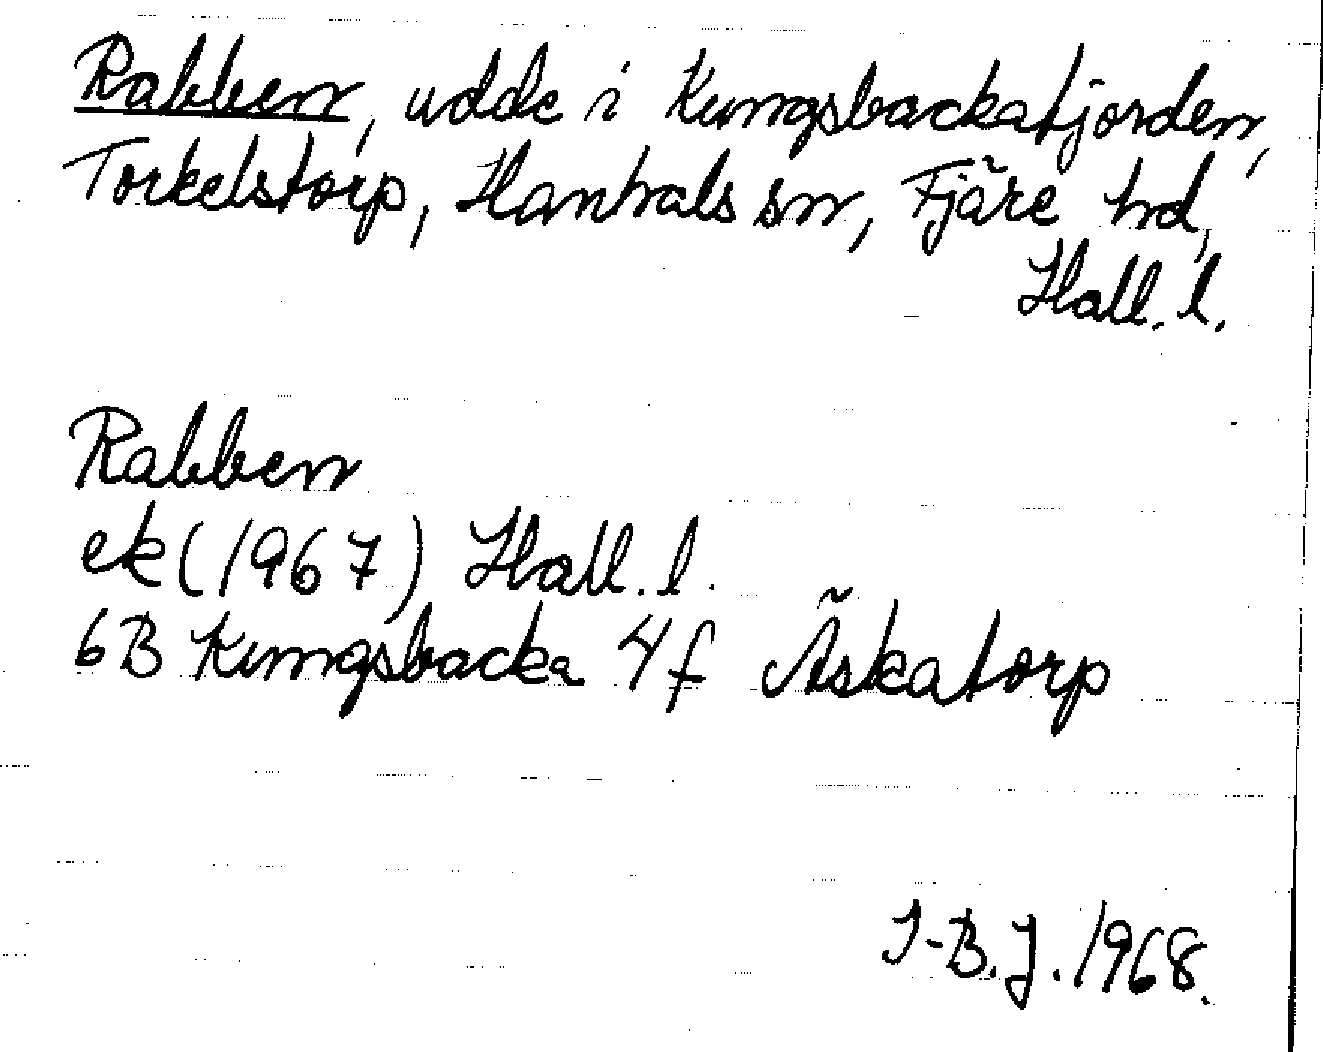 Rabben, udde i Kungsbackafjorden,
Torkelstorp, Hanhals sn, Fjäre hd,
Hall. l.
Rabben
ek (1967) Hall. l.
6B Kungsbacka 4f Äskatorp
I-B.J. 1968.